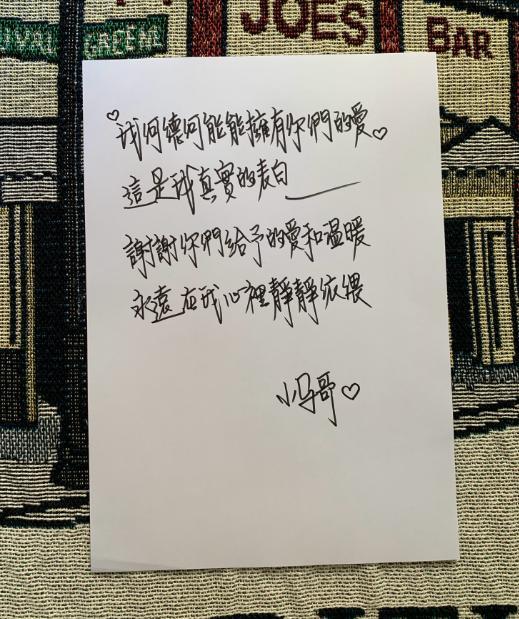 IVAL
GREENE
JOES
BAR
♡我何德何能能擁有你們的愛♡
這是我真實的表白——
謝謝你們給予的愛和溫暖
永遠在我心裡靜靜依偎
小馮哥♡